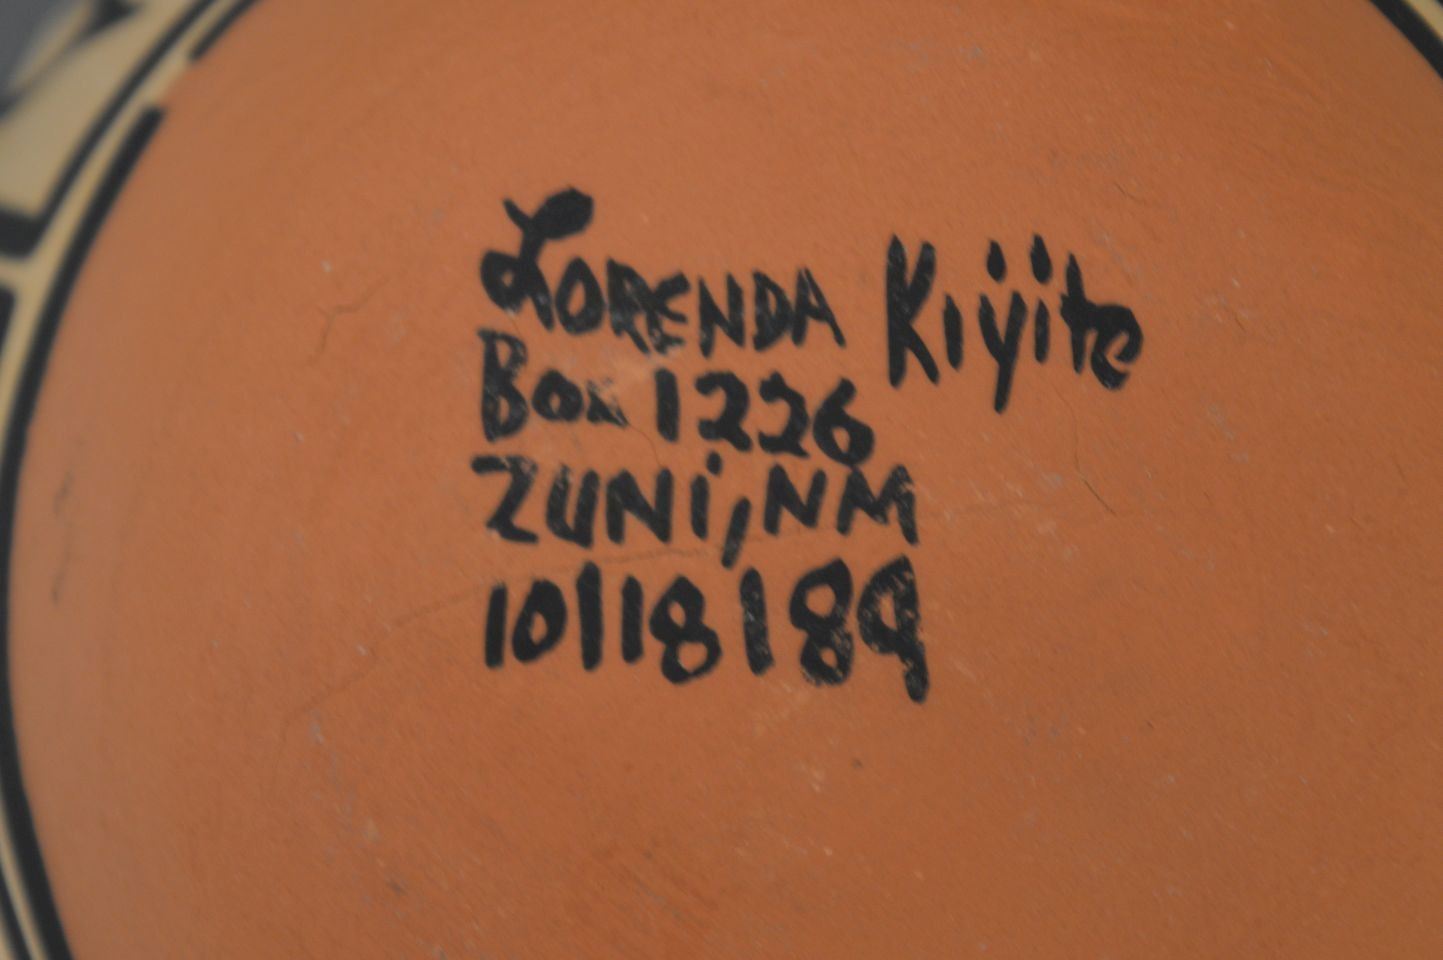 LORENDA Kiyite
Box 1226
ZUNi, NM
10/18/89